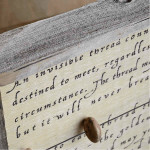 An invisible thread conn
destined to meet, regardless
circumstance. The thread m
but it will never brea
the golden